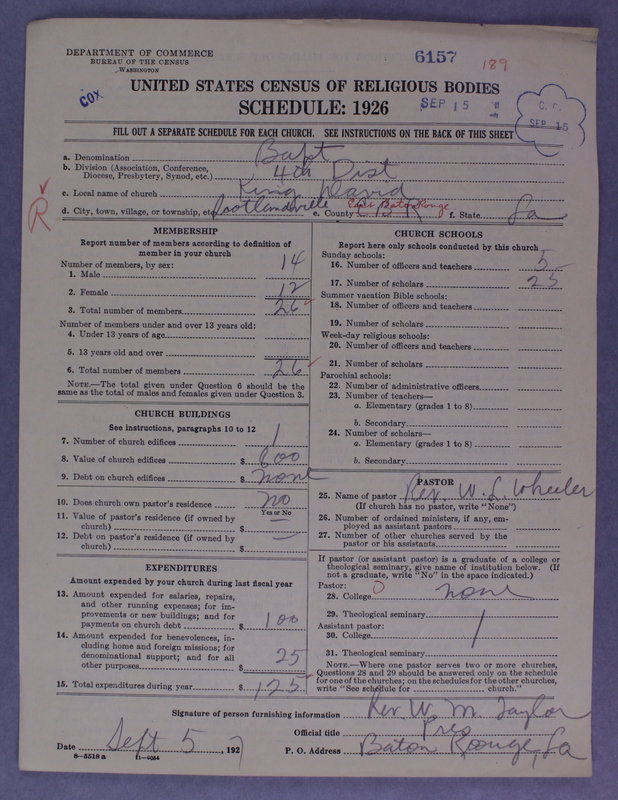 DEPARTMENT OF COMMERCE
BUREAU OF THE CENSUS
WASHINGTON
6157
189
COX
UNITED STATES CENSUS OF RELIGIOUS BODIES
SCHEDULE: 1926
SEP 15
C. C.
SEP 15
FILL OUT A SEPARATE SCHEDULE FOR EACH CHURCH. SEE INSTRUCTIONS ON THE BACK OF THIS SHEET
a. Denomination Bapt
b. Division (Association, Conference, Diocese, Presbytery, Synod, etc.) 4th Dist
c. Local name of church King David
R
d. City, town, village, or township, etc. Scotlandville e. County East Baton Rouge f. State La
MEMBERSHIP
Report number of members according to definition of
member in your church
Number of members, by sex:
1. Male 14
2. Female 12
3. Total number of members 26
Number of members under and over 13 years old:
4. Under 13 years of age
5. 13 years old and over
6. Total number of members 26
NOTE.—The total given under Question 6 should be the
same as the total of males and females given under Question 3.
CHURCH BUILDINGS
See instructions, paragraphs 10 to 12
7. Number of church edifices 1
8. Value of church edifices $ 600
9. Debt on church edifices $ none
10. Does church own pastor's residence no
Yes or No
11. Value of pastor's residence (if owned by
church) $ —
12. Debt on pastor's residence (if owned by
church) $ —
EXPENDITURES
Amount expended by your church during last fiscal year
13. Amount expended for salaries, repairs,
and other running expenses; for im-
provements or new buildings; and for
payments on church debt $ 100
14. Amount expended for benevolences, in-
cluding home and foreign missions; for
denominational support; and for all
other purposes $ 25
15. Total expenditures during year $ 125
CHURCH SCHOOLS
Report here only schools conducted by this church
Sunday schools:
16. Number of officers and teachers 5
17. Number of scholars 25
Summer vacation Bible schools:
18. Number of officers and teachers
19. Number of scholars
Week-day religious schools:
20. Number of officers and teachers
21. Number of scholars
Parochial schools:
22. Number of administrative officers
23. Number of teachers—
a. Elementary (grades 1 to 8)
b. Secondary
24. Number of scholars—
a. Elementary (grades 1 to 8)
b. Secondary
PASTOR
25. Name of pastor Rev. W. L. Wheeler
(If church has no pastor, write "None")
26. Number of ordained ministers, if any, em-
ployed as assistant pastors
27. Number of other churches served by the
pastor or his assistants
If pastor (or assistant pastor) is a graduate of a college or
theological seminary, give name of institution below. (If
not a graduate, write "No" in the space indicated.)
Pastor:
28. College 0 none
29. Theological seminary
Assistant pastor:
30. College
31. Theological seminary
NOTE.—Where one pastor serves two or more churches,
Questions 28 and 29 should be answered only on the schedule
for one of the churches; on the schedules for the other churches,
write "See schedule for church."
Signature of person furnishing information Rev. W. M. Taylor
Official title Pres
Date Sept 5, 1927 P. O. Address Baton Rouge, La
8—5518 a 11—9034